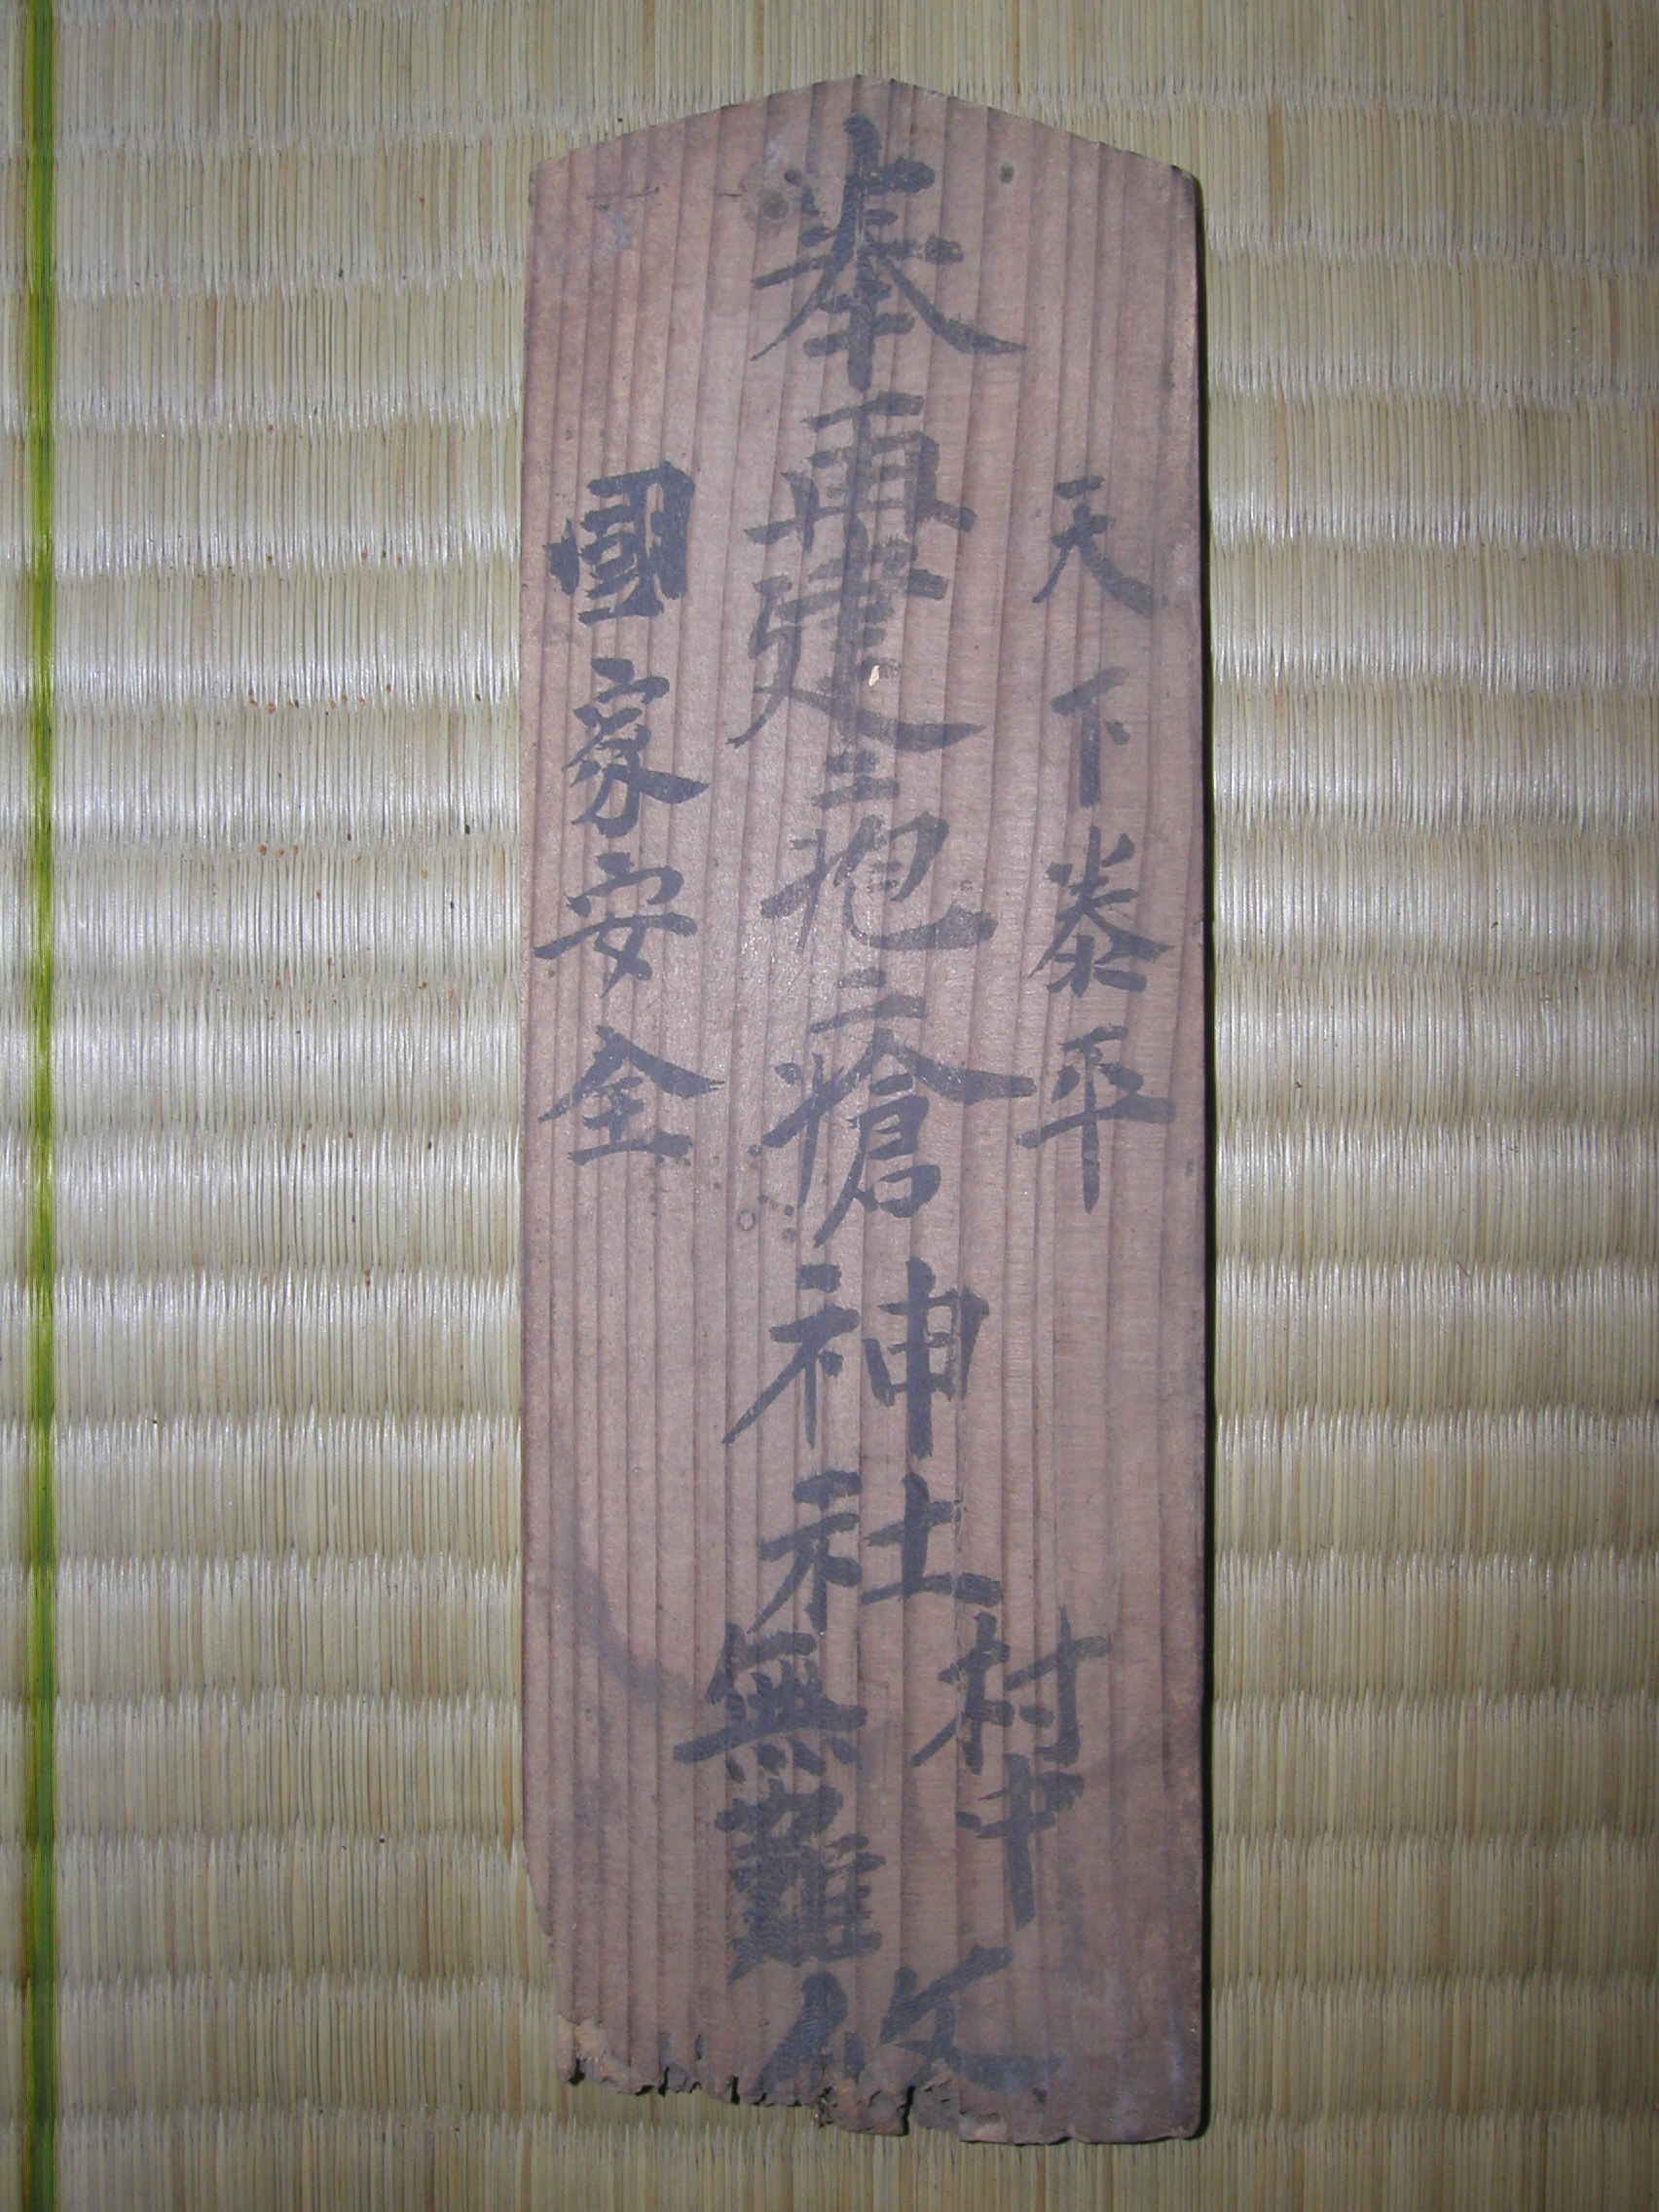 天下泰平
奉再建疱瘡神社
村中
無難
攸
國家安全